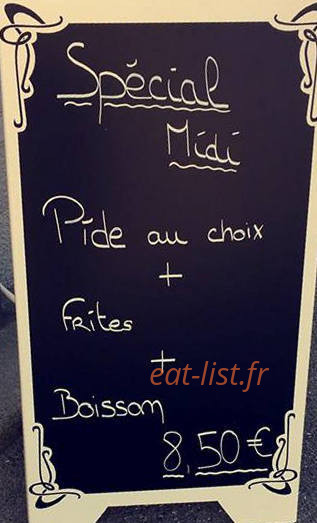 Spécial
Midi
Pide au choix
+
Frites
+
eat-list.fr
Boisson
8,50€